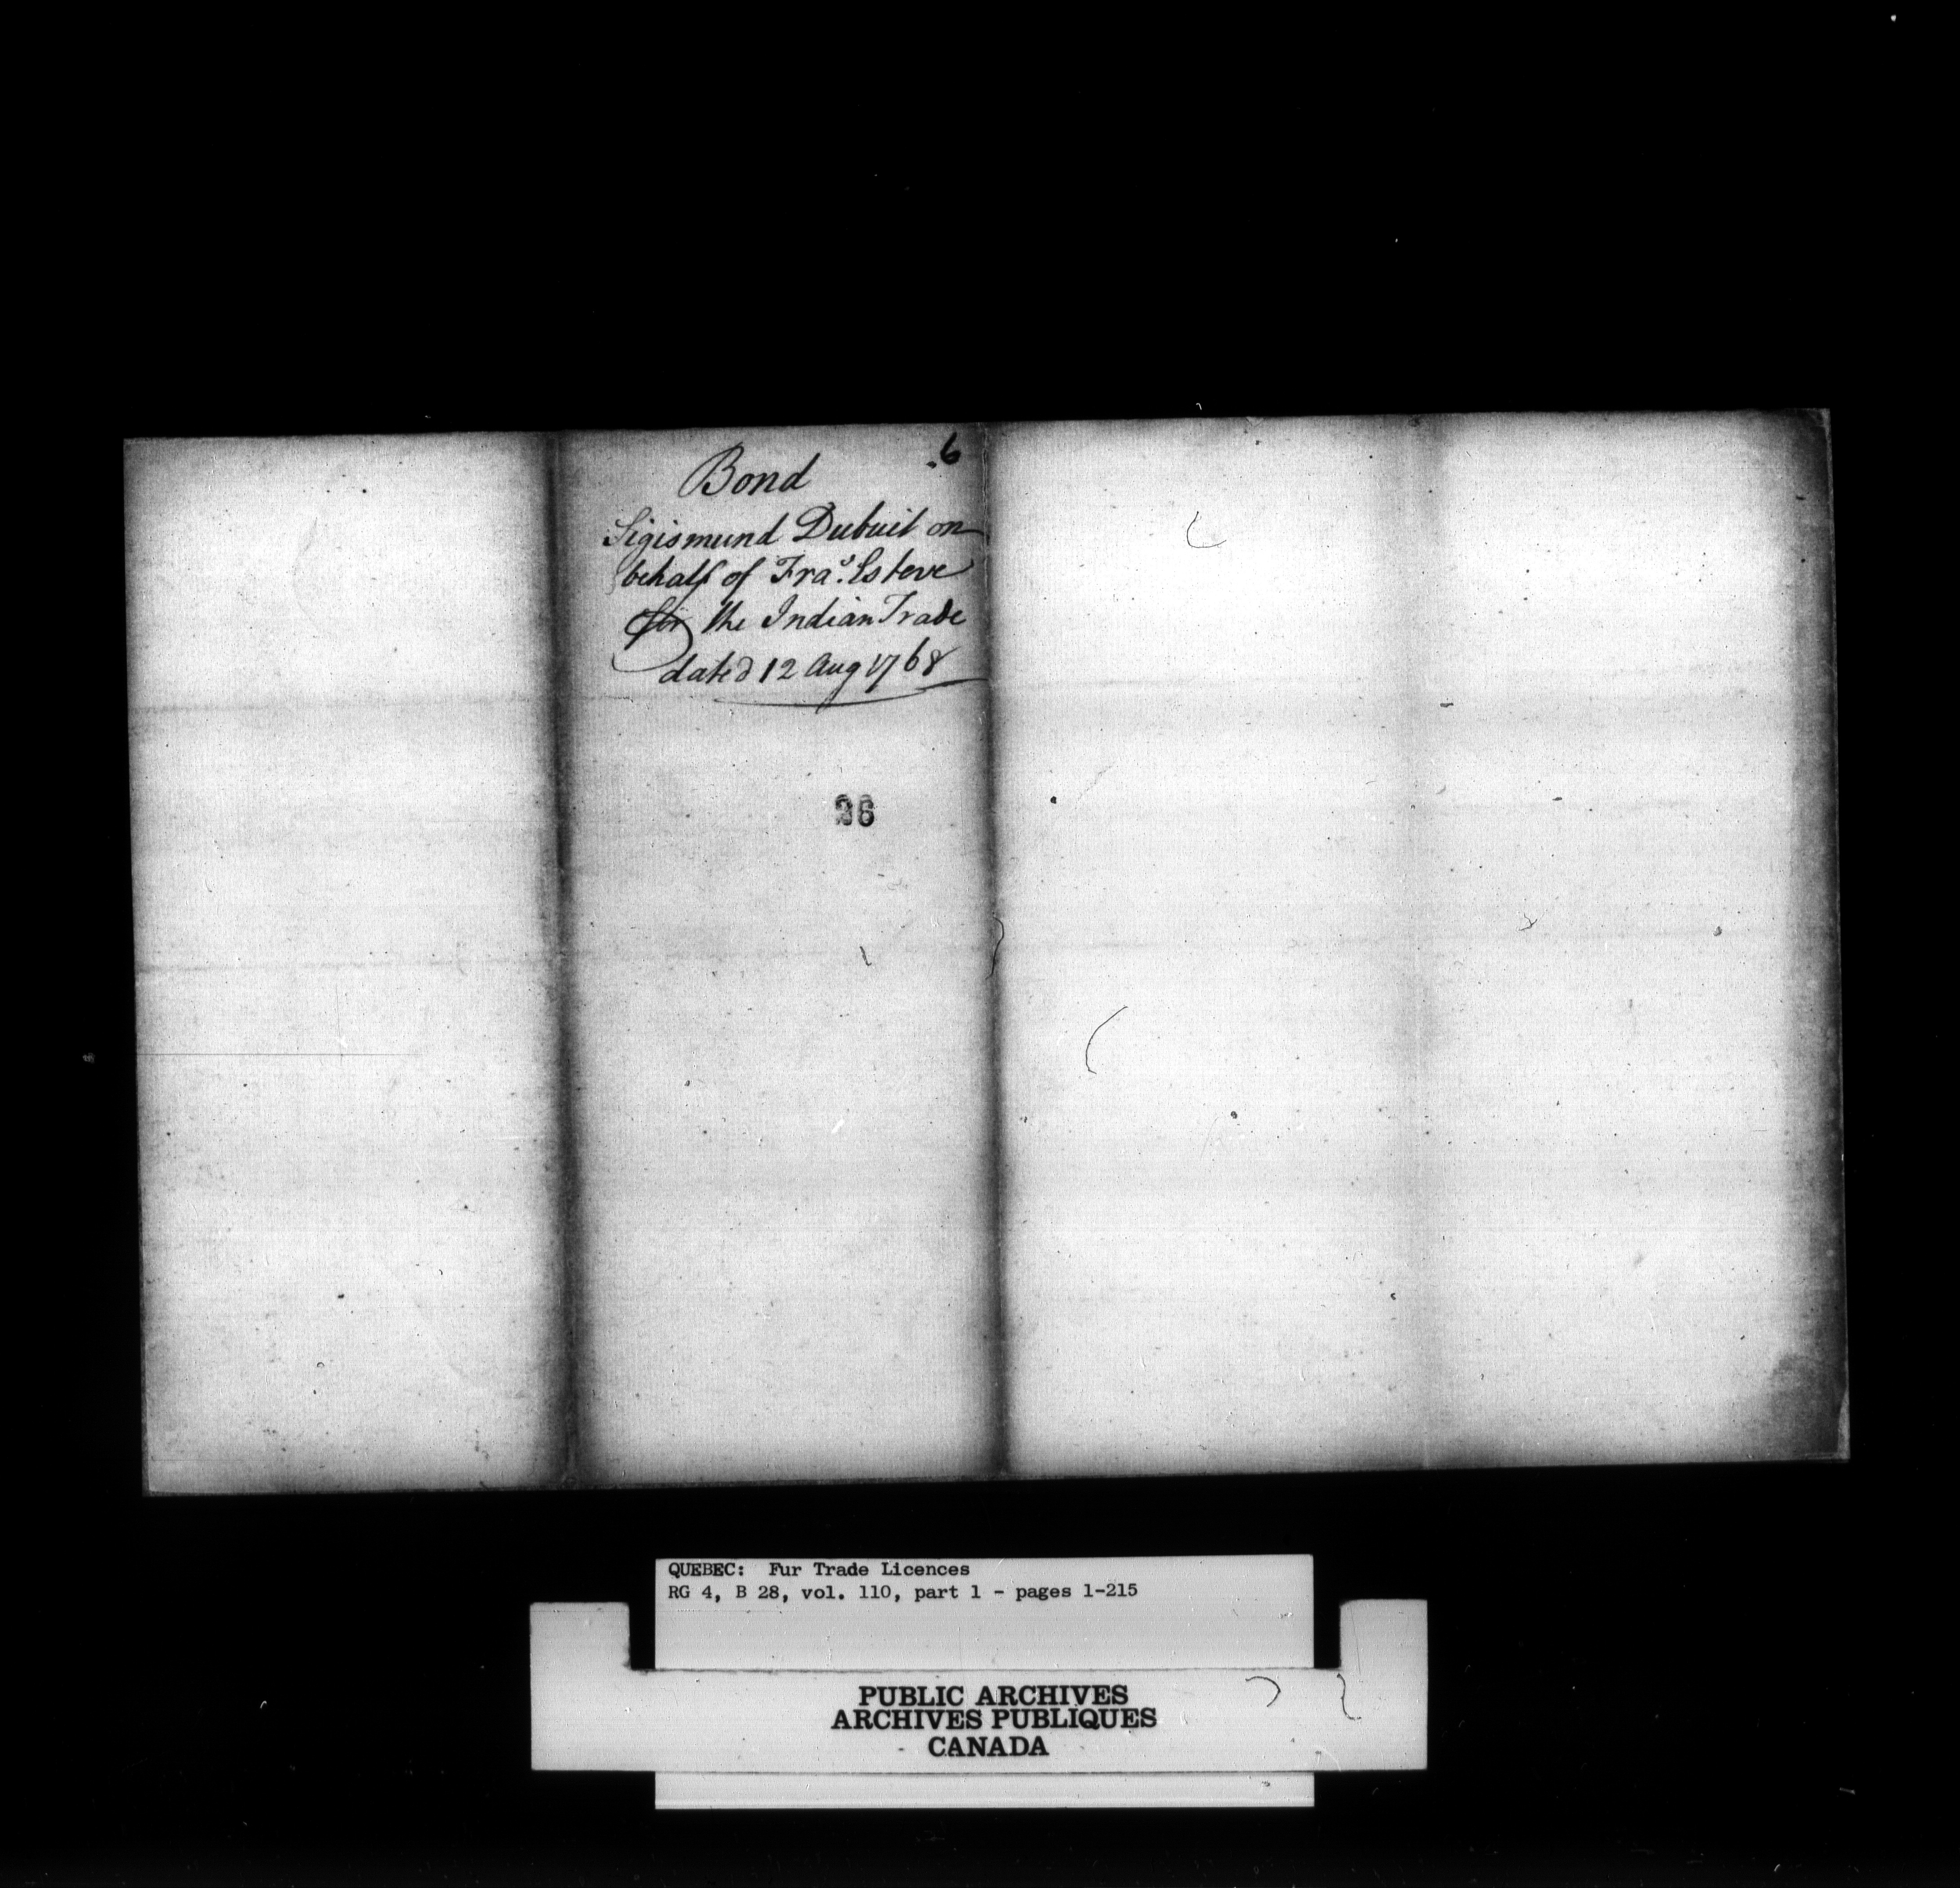 .6
Bond
Sigismund Dubuil on
behalf of Fraˢ. Esteve
for the Indian Trade
dated 12 Aug 1768
36
QUEBEC: Fur Trade Licences
RG 4, B 28, vol. 110, part 1 - pages 1-215
PUBLIC ARCHIVES
ARCHIVES PUBLIQUES
CANADA